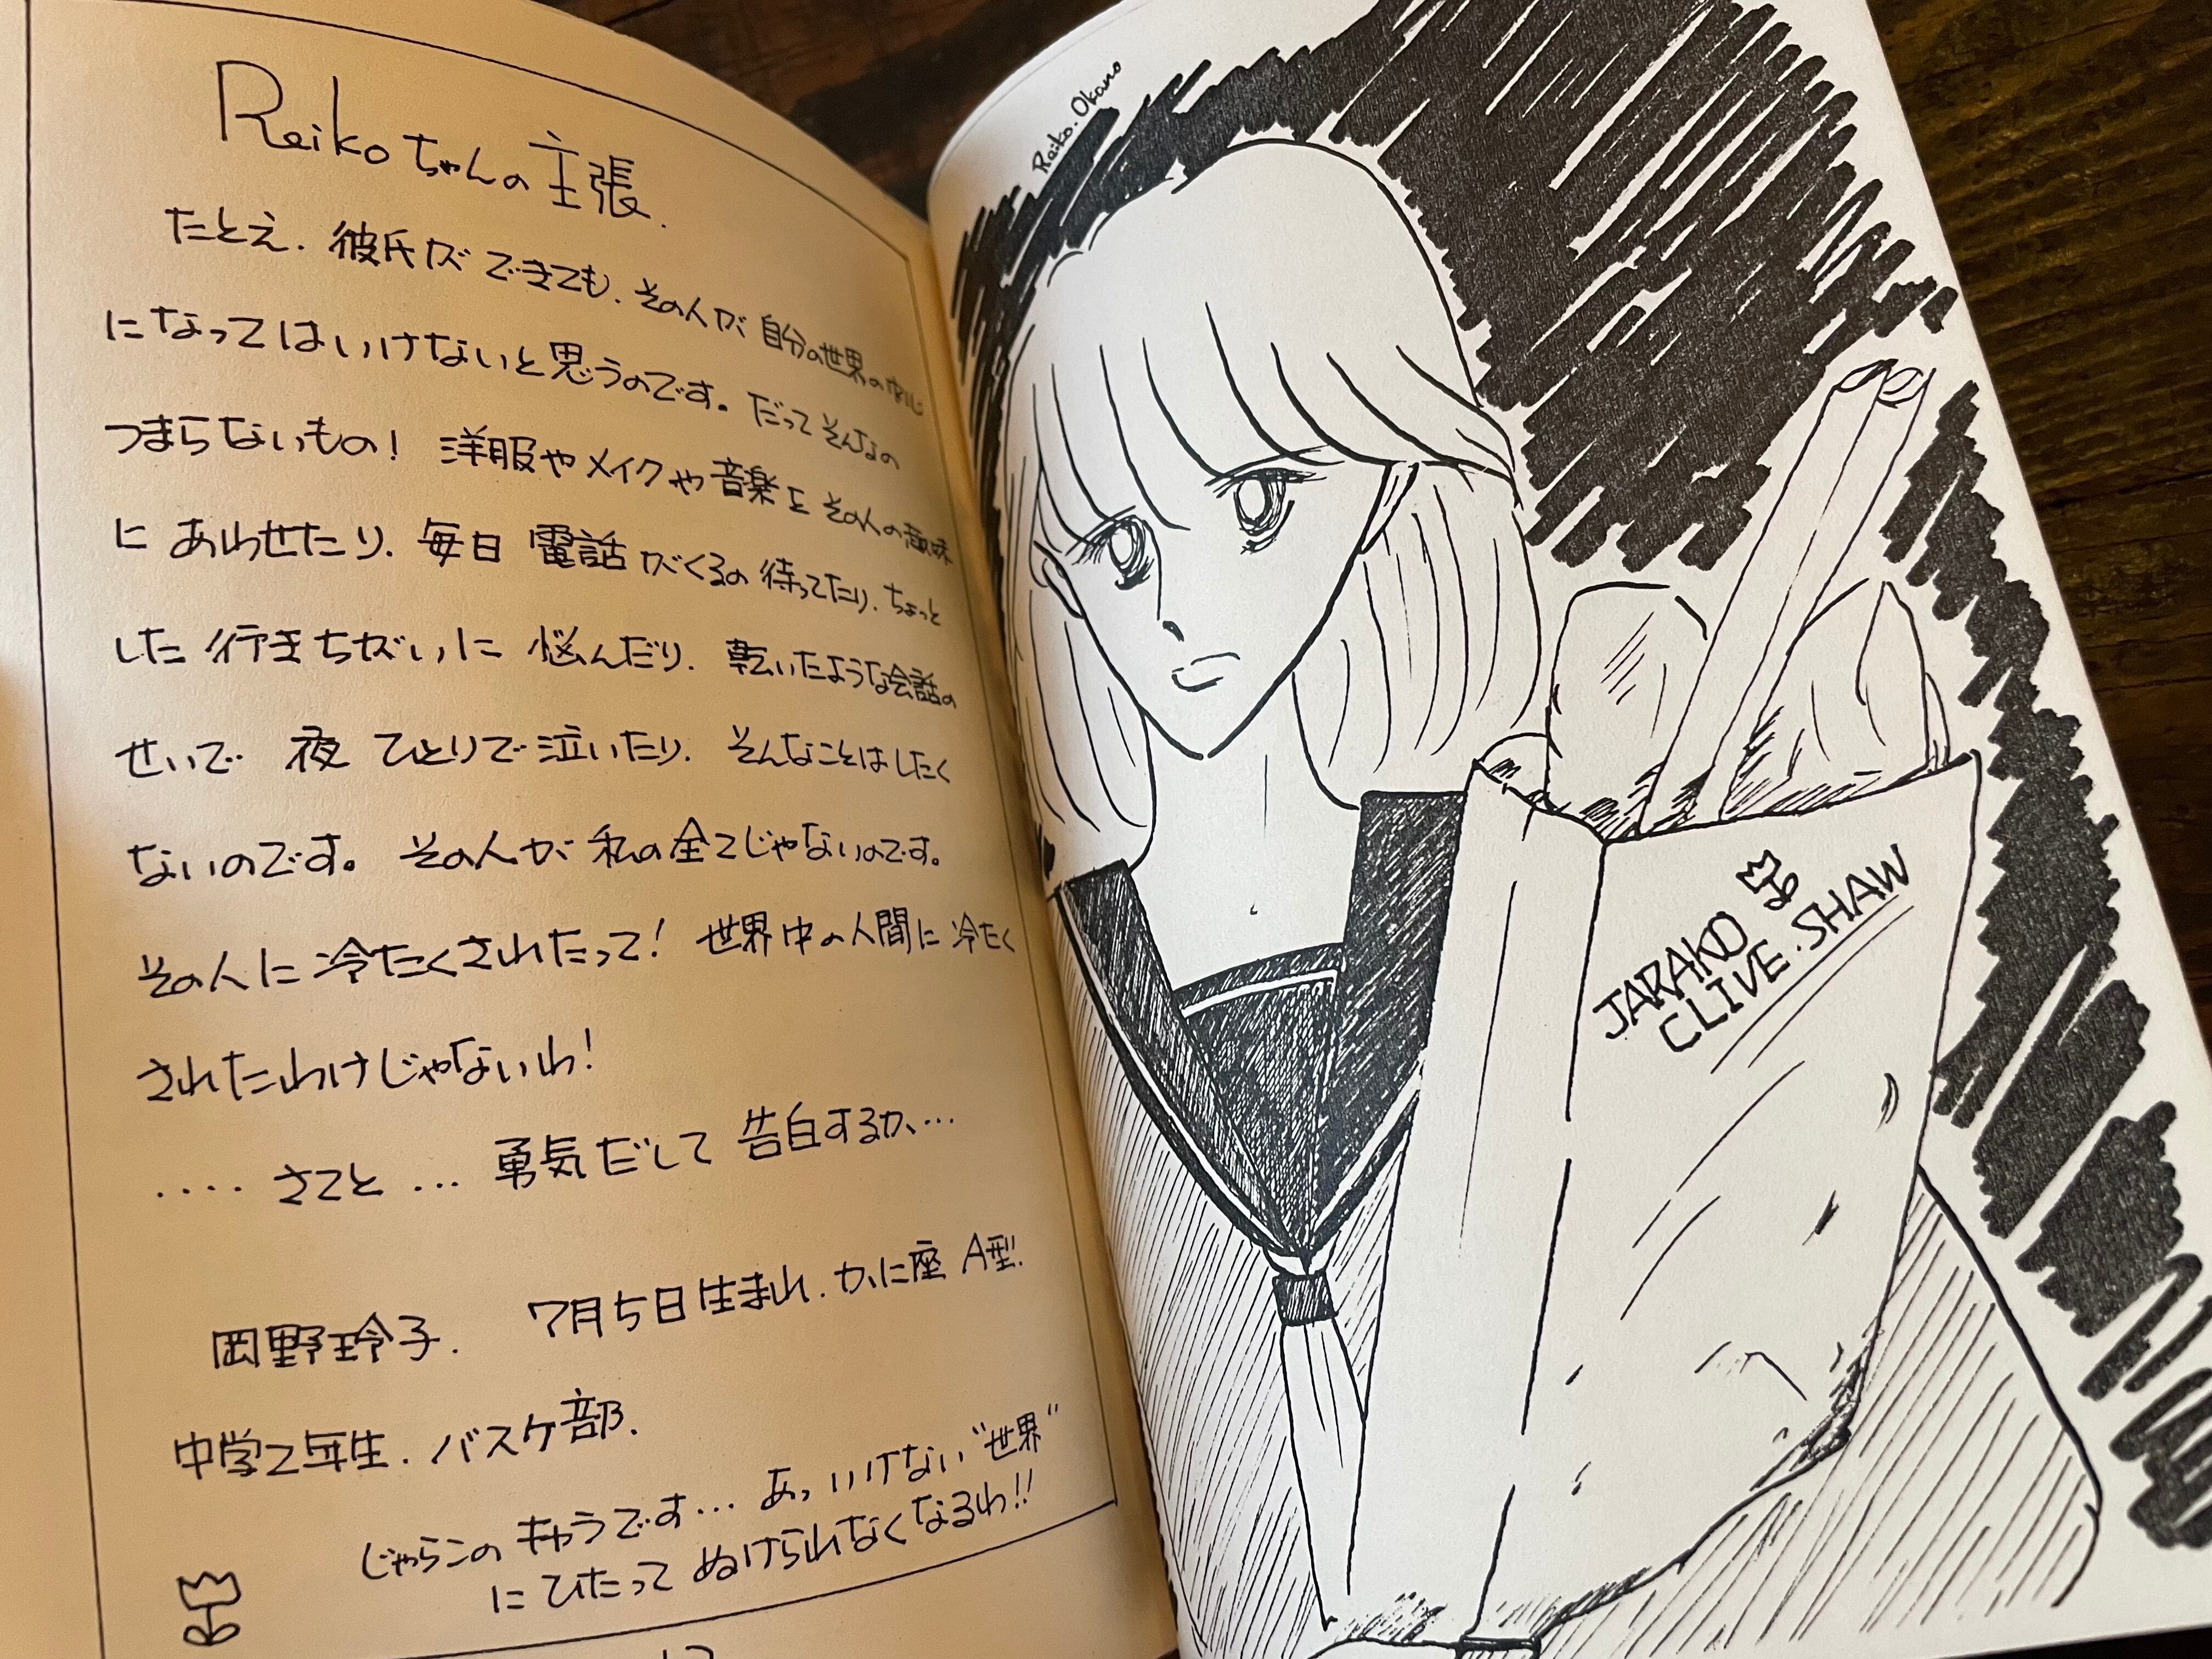 Reikoちゃんの主張.
たとえ. 彼氏ができても. その人が 自分の世界の中心
になってはいけないと思うのです。だって そんなの
つまらないもの! 洋服やメイクや音楽を その人の趣味
に あわせたり. 毎日 電話がくるの待ってたり. ちょっと
した 行きちがいに 悩んだり. 乾いたような会話の
せいで 夜 ひとりで泣いたり. そんなことはしたく
ないのです。その人が 私の全てじゃないのです。
その人に 冷たくされたって! 世界中の人間に 冷たく
されたわけじゃないわ!
‥‥ さてと … 勇気だして 告白するか…
岡野玲子. 7月5日生まれ. かに座 A型.
中学2年生. バスケ部.
じゃらこの キャラです… あっ いけない “世界”
に ひたって ぬけられなくなるわ!!
Reiko.Okano
JARAKO
CLIVE.SHAW